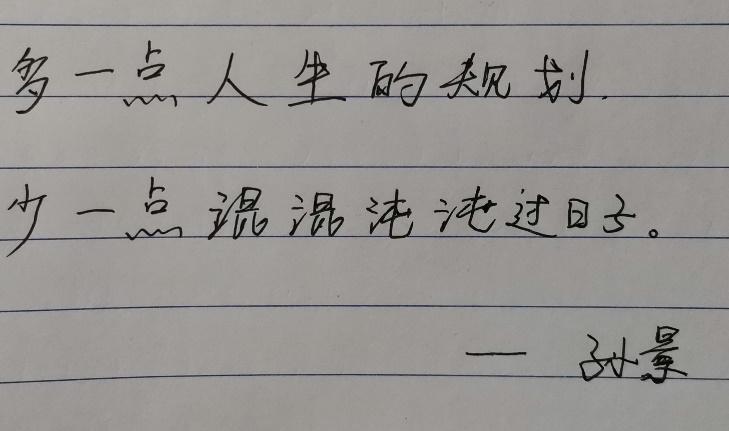 多一点人生的规划.
少一点混混沌沌过日子。
— 孙景